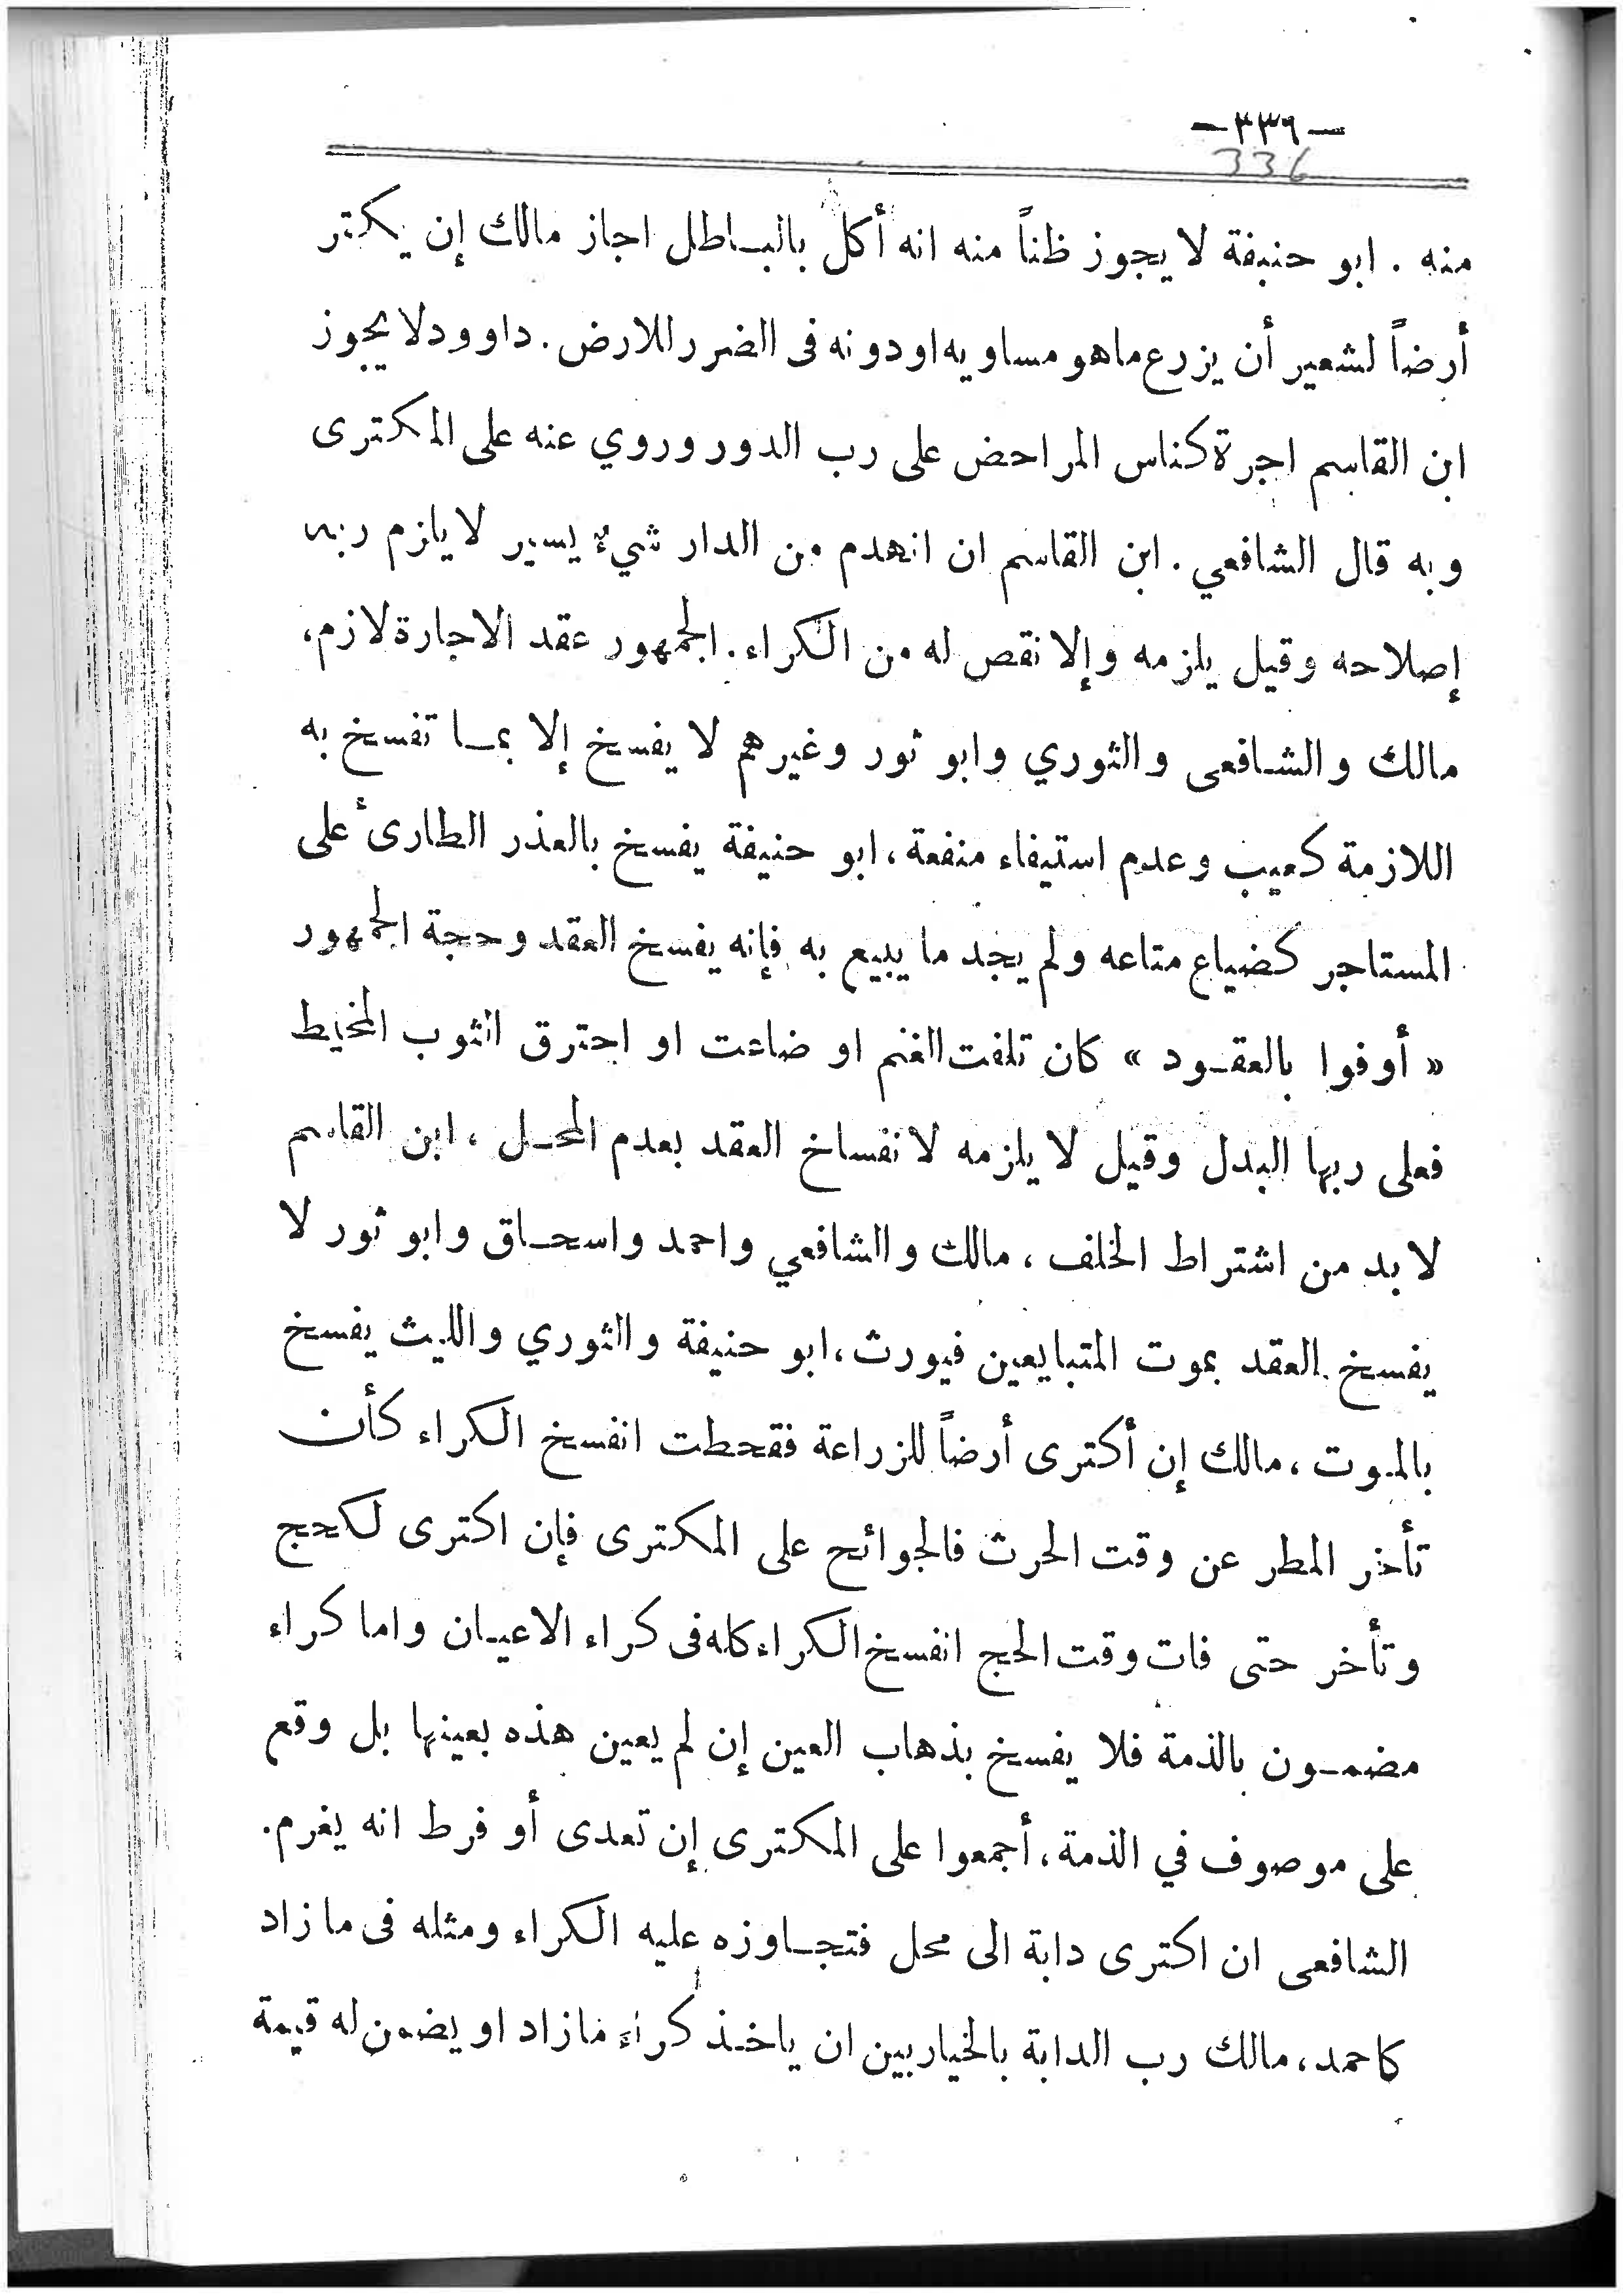 — ٣٣٦ —
336
منه . ابو حنيفة لا يجوز ظناً منه انه أكل بالباطل اجاز مالك إن يكتر
أرضاً لشعير أن يزرع ما هو مساو يه او دونه فى الضرر للارض . داوود لا يجوز
ابن القاسم اجرة كناس المراحض على رب الدور وروي عنه على المكترى
وبه قال الشافعي . ابن القاسم ان انهدم من الدار شيء يسير لا يلزم ربه
إصلاحه وقيل يلزمه وإلا نقص له من الكراء . الجمهور عقد الاجارة لازم ،
مالك والشافعى والثوري وابو ثور وغيرهم لا يفسخ إلا بما تفسخ به
اللازمة كعيب وعدم استيفاء منفعة ، ابو حنيفة يفسخ بالعذر الطارئ على
المستاجر كضياع متاعه ولم يجد ما يبيع به فإنه يفسخ العقد وحجة الجمهور
« أوفوا بالعقود » كان تلفت الغنم او ضاعت او احترق الثوب المخيط
فعلى ربها البدل وقيل لا يلزمه لانفساخ العقد بعدم المحل ، ابن القاسم
لا بد من اشتراط الخلف ، مالك والشافعي واحمد واسحاق وابو ثور لا
يفسخ العقد بموت المتبايعين فيورث ، ابو حنيفة والثوري والليث يفسخ
بالموت ، مالك إن أكترى أرضاً للزراعة فقحطت انفسخ الكراء كأن
تأخر المطر عن وقت الحرث فالجوائح على المكترى فإن اكترى لكحج
وتأخر حتى فات وقت الحج انفسخ الكراء كله فى كراء الاعيان واما كراء
مضمون بالذمة فلا يفسخ بذهاب العين إن لم يعين هذه بعينها بل وقع
على موصوف في الذمة ، أجمعوا على المكترى إن تعدى أو فرط انه يغرم .
الشافعى ان اكترى دابة الى محل فتجاوزه عليه الكراء ومثله فى ما زاد
كاحمد ، مالك رب الدابة بالخيار بين ان ياخذ كراء مازاد او يضمن له قيمة